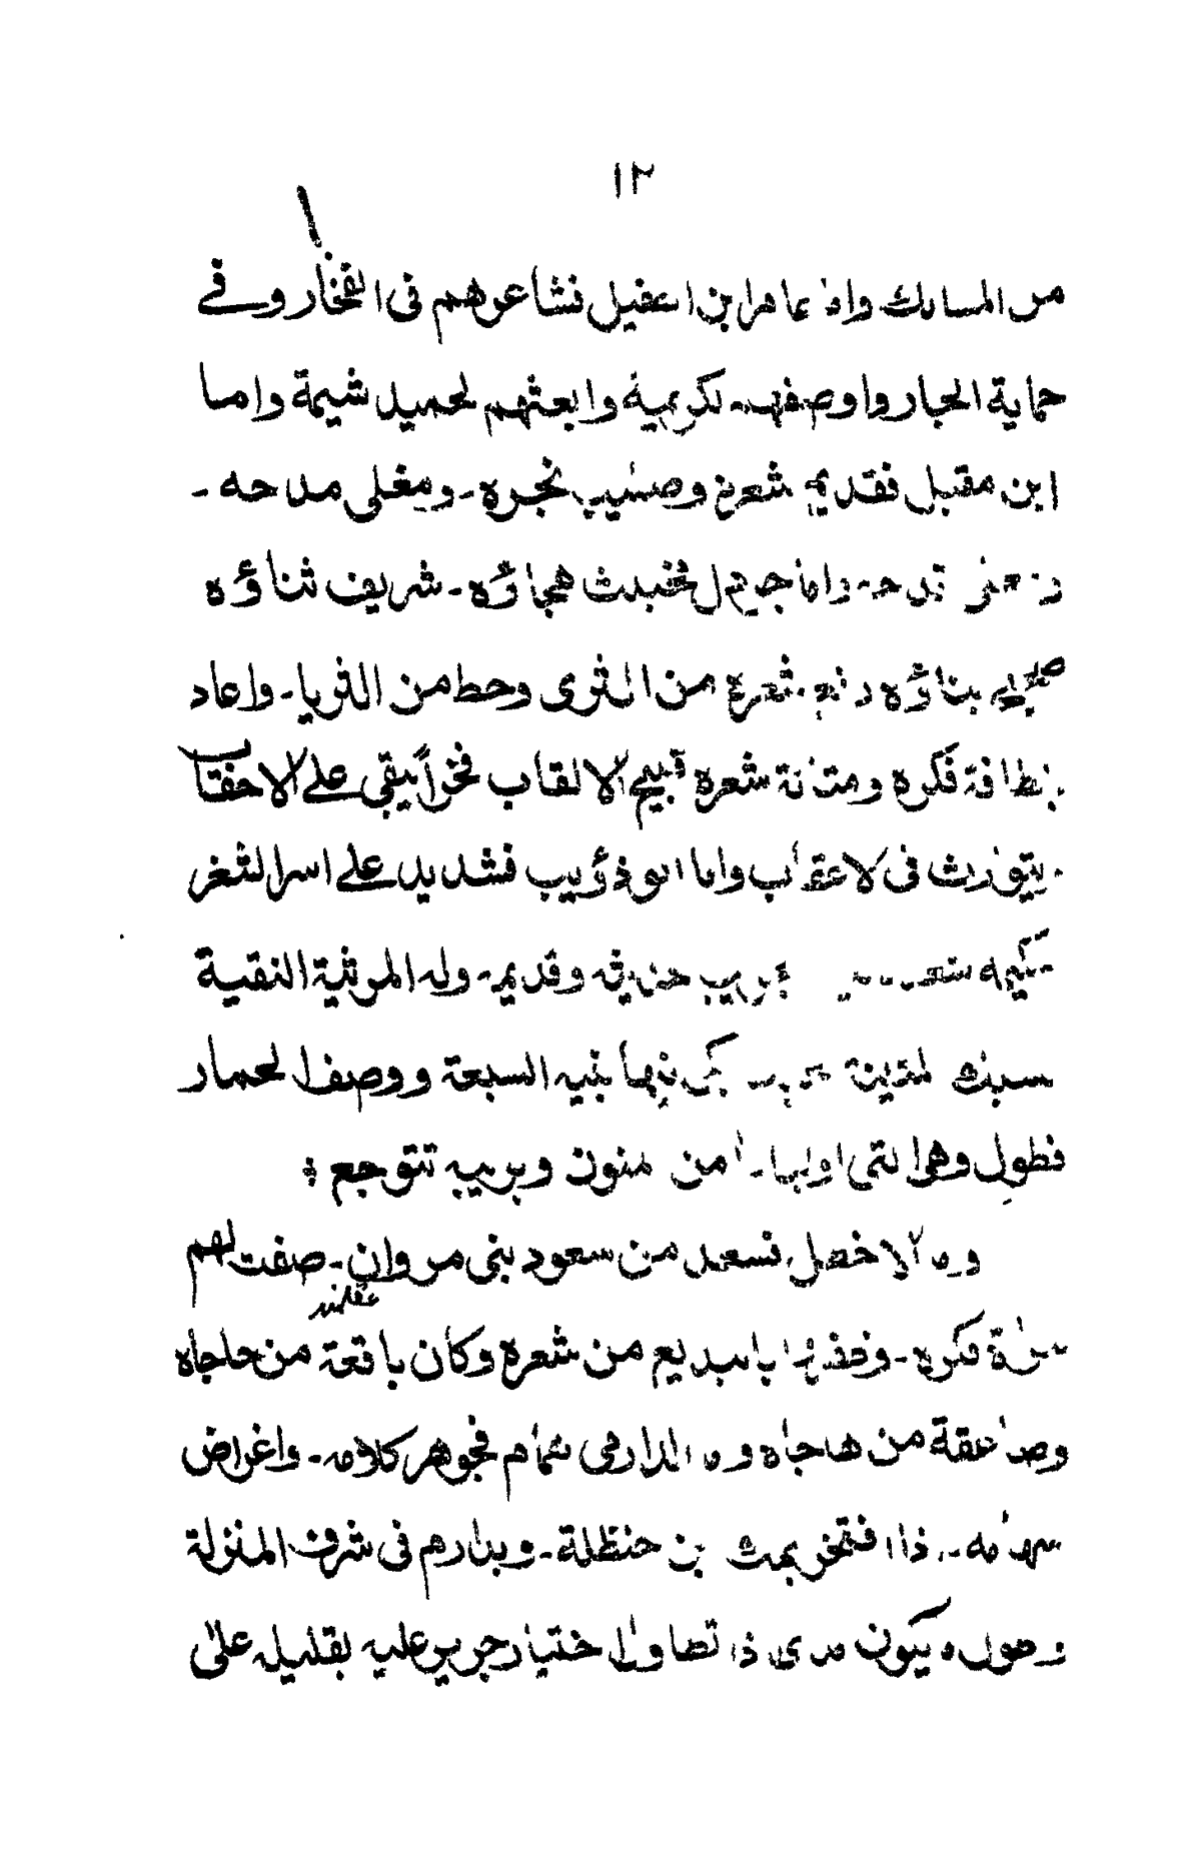 ١٢
من المسالك واما عامر ابن الطفيل فشاعرهم فى الفخار وفے
حماية الجار واوصفهم لكريمة وابعثهم لحميد شيمة واما
ابن مقبل فقديم شعره وصليب نجره ـ ومغلى مدحه ـ
قدحه واما جرول فخبيث هجاؤه ـ شريف ثناؤه
صحيح بناؤه رفع شعره من الثرى وحط من الثريا ـ واعاد
بلطافة فكره ومتانة شعره قبيح الالقاب فخراً يبقى علے الاحقاب
يتوارث فى الاعقاب واما ابو ذؤيب فشديد علے اسر الشعر
حكيمه وقديمه وله المرثية النقية
السبك المتينة بكى فيها بنيه السبعة ووصف الحمار
فطول وهى التى اولها ـ أمن المنون وريبه تتوجع ؛
واما الاخطل فسعد من سعود بنى مروان ـ صفت لهم
مرآة فكره ـ وظفروا بالبديع من شعره وكان باقعة من حاجاه
وصاعقة من هاجاه واما الدارمى همام فجوهر كلامه ـ واغراض
سهامه ـ اذا افتخر بملك بن حنظلة ـ وبدارم فى شرف المنزلة
واطول ما يكون مدى اذا تطاول اختيار جرير عليه بقليله علىٰ